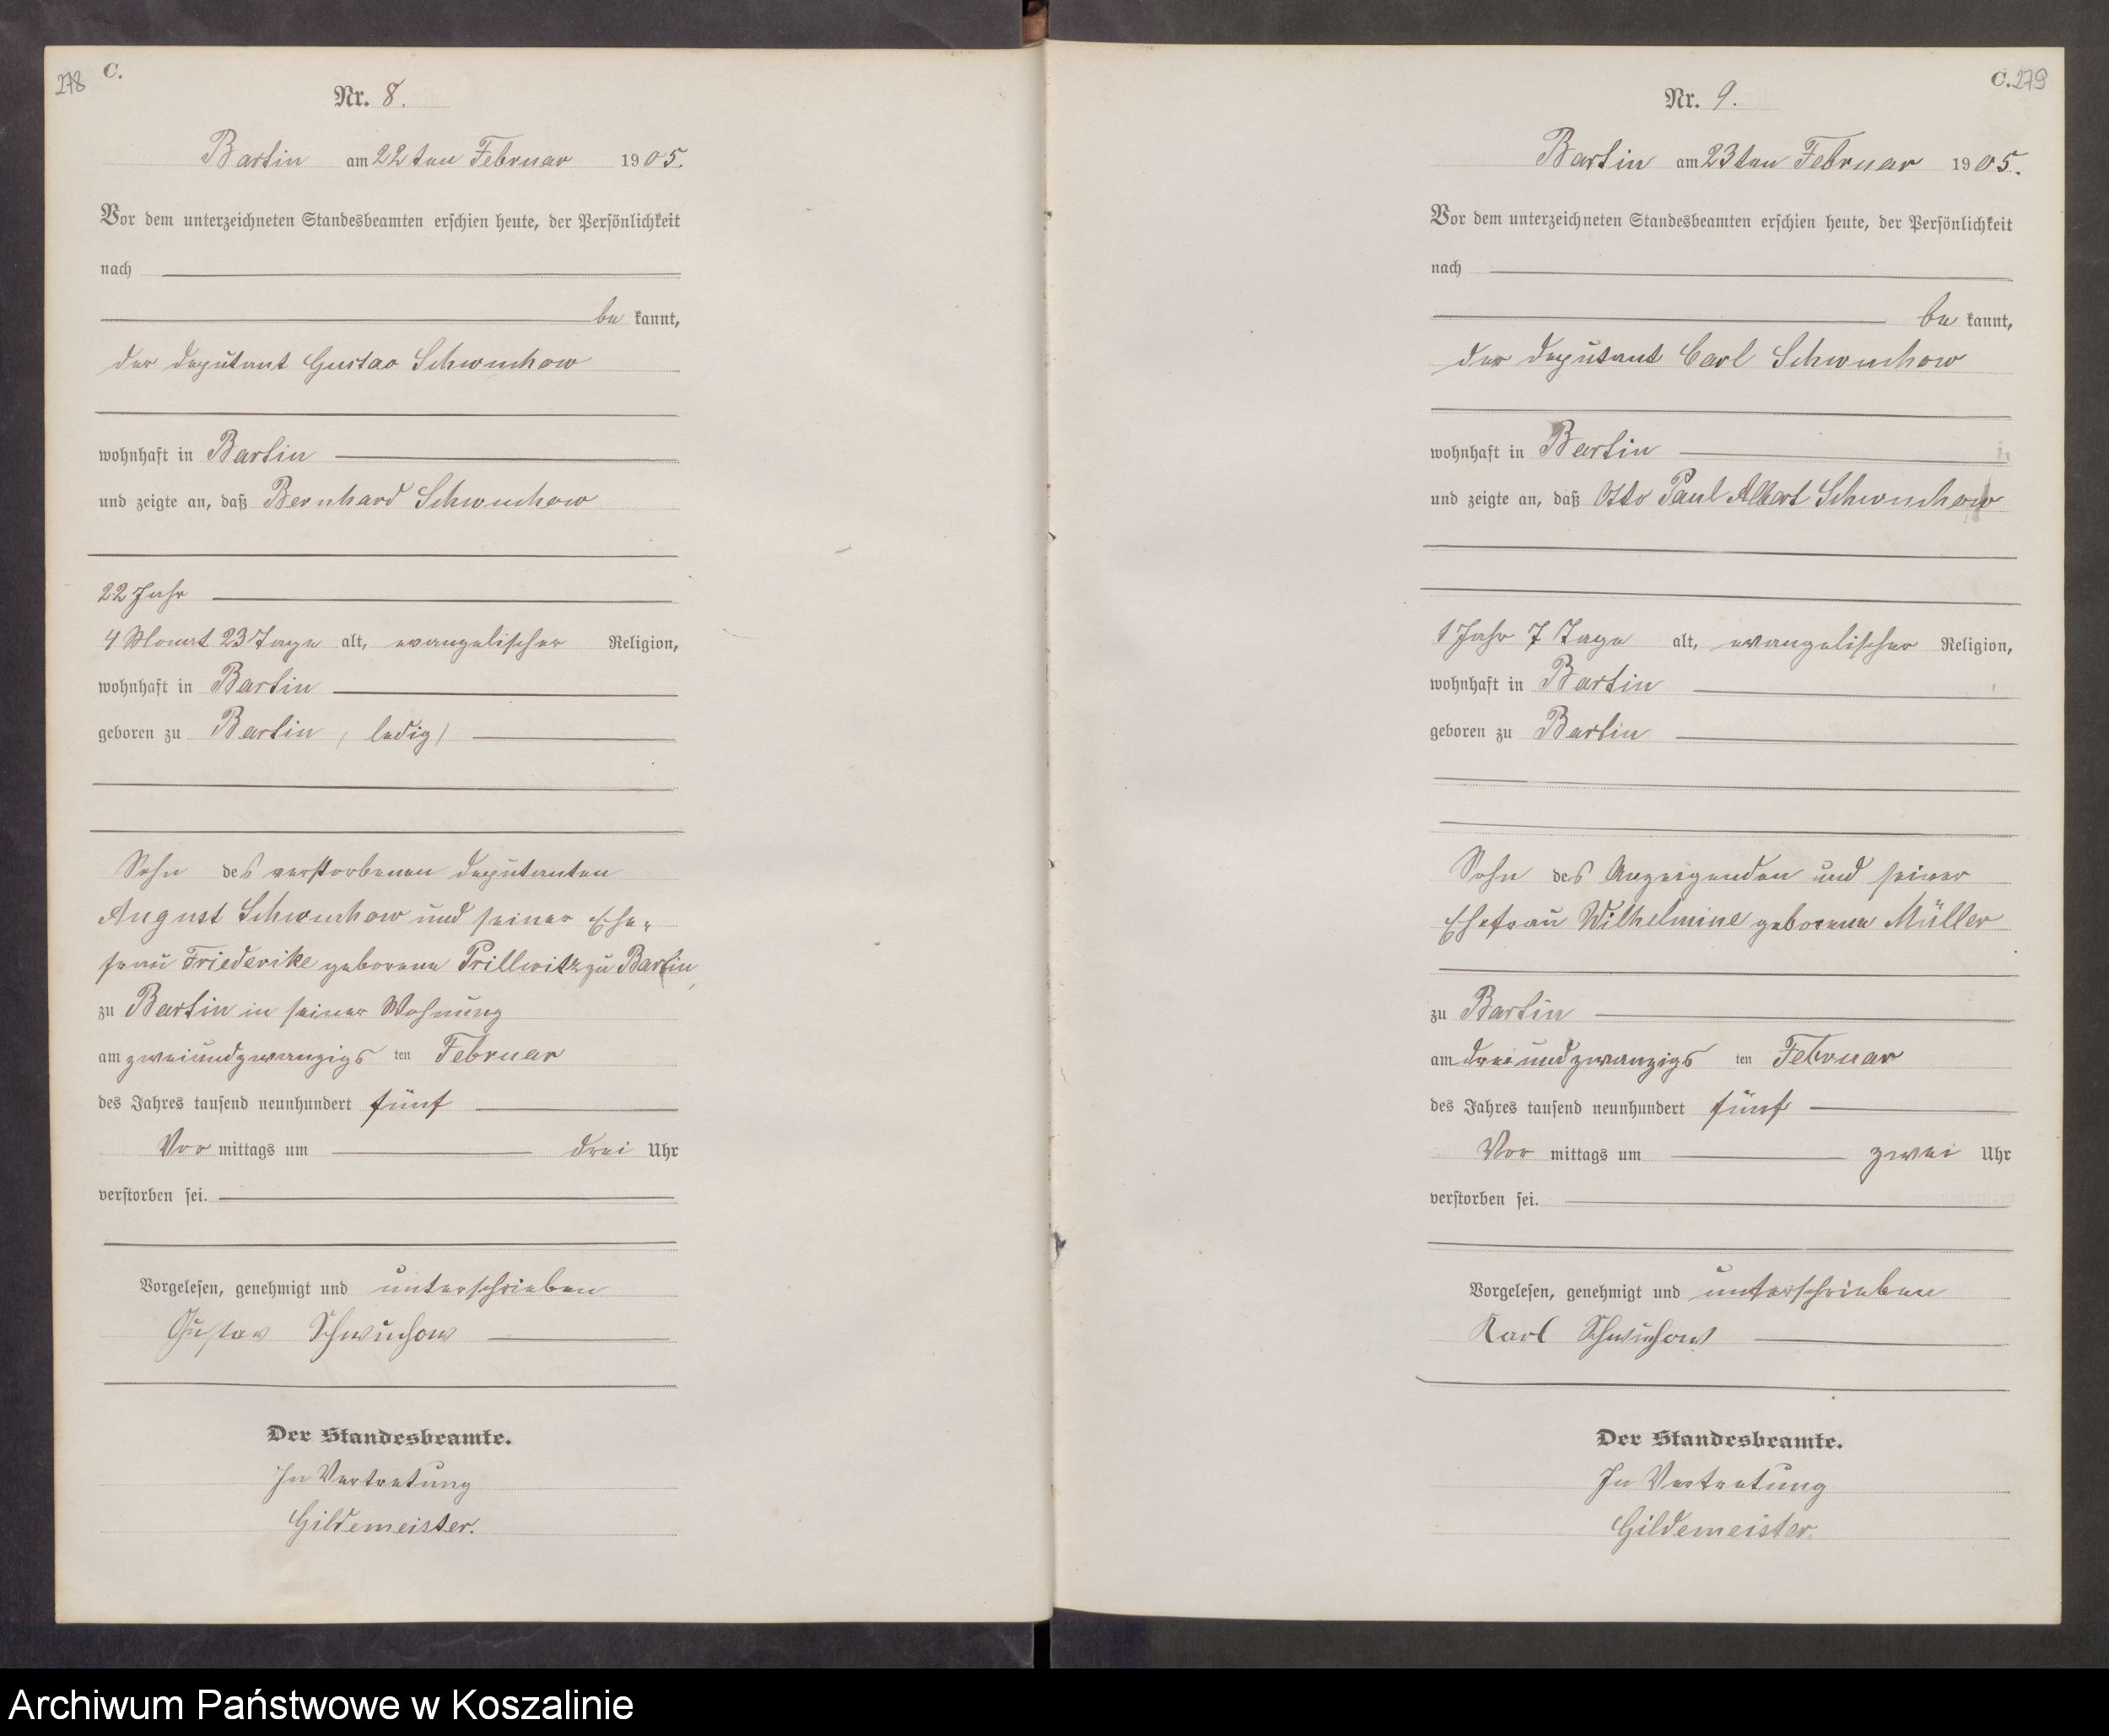 278
C.
Nr. 8.
Bartin am 22ten Februar 1905.
Vor dem unterzeichneten Standesbeamten erschien heute, der Persönlichkeit
nach
be kannt,
der Deputant Gustav Schwuchow
wohnhaft in Bartin
und zeigte an, daß Bernhard Schwuchow
22 Jahr
4 Monat 23 Tage alt, evangelischer Religion,
wohnhaft in Bartin
geboren zu Bartin, (ledig)
Sohn des verstorbenen Deputanten
August Schwuchow und seiner Ehe-
frau Friederike geborene Prillwitz zu Bartin,
zu Bartin in seiner Wohnung
am zweiundzwanzigsten Februar
des Jahres tausend neunhundert fünf
Vor mittags um drei Uhr
verstorben sei.
Vorgelesen, genehmigt und unterschrieben
Gustav Schwuchow
Der Standesbeamte.
In Vertretung
Gildemeister.
C. 279
Nr. 9.
Bartin am 23ten Februar 1905.
Vor dem unterzeichneten Standesbeamten erschien heute, der Persönlichkeit
nach
be kannt,
der Deputant Carl Schwuchow
wohnhaft in Bartin
und zeigte an, daß Otto Paul Albert Schwuchow
1 Jahr 7 Tage alt, evangelischer Religion,
wohnhaft in Bartin
geboren zu Bartin
Sohn des Anzeigenden und seiner
Ehefrau Wilhelmine geborene Müller
zu Bartin
am dreiundzwanzigsten Februar
des Jahres tausend neunhundert fünf
Vor mittags um zwei Uhr
verstorben sei.
Vorgelesen, genehmigt und unterschrieben
Karl Schwuchow
Der Standesbeamte.
In Vertretung
Gildemeister.
Archiwum Państwowe w Koszalinie